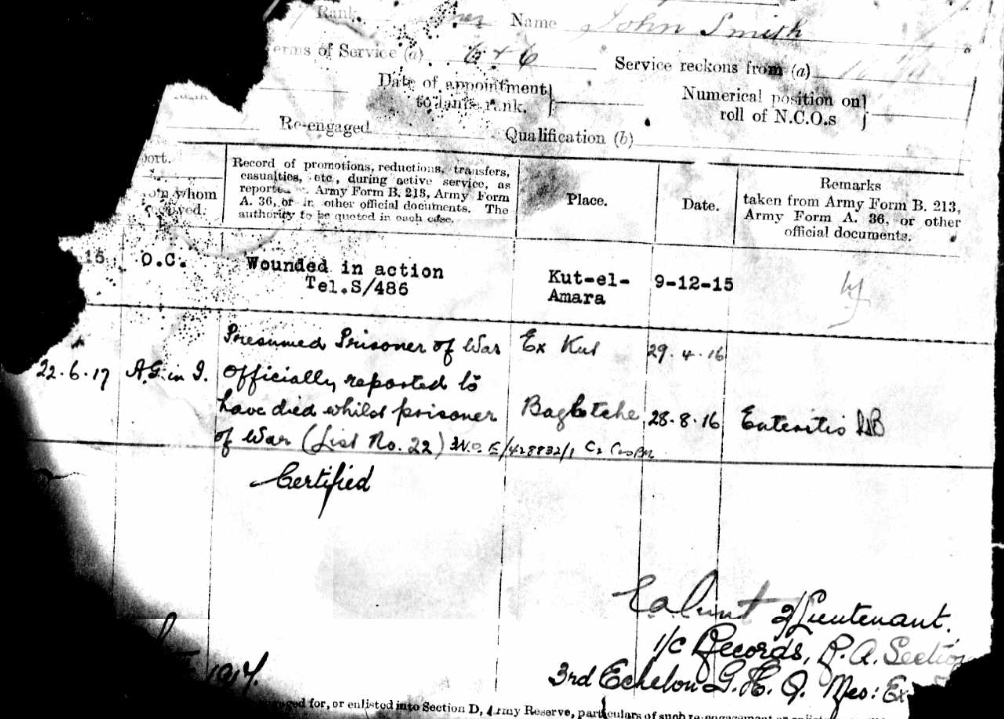 Rank. Name John Smith
erms of Service (a) 6+6 Service reckons from (a)
Date of appointment
to lance rank.
Numerical position on
roll of N.C.Os
Re-engaged Qualification (b)
port.
whom
Record of promotions, reductions, transfers,
casualties, etc., during active service, as
reported Army Form B. 213, Army Form
A. 36, or in other official documents. The
authority to be quoted in each case.
Place.
Date.
Remarks
taken from Army Form B. 213,
Army Form A. 36, or other
official documents.
15 O.C. Wounded in action
Tel.S/486
Kut-el-
Amara
9-12-15
Presumed Prisoner of War Ex Kut 29.4.16
22.6.17 A.G. in I. Officially reported to
have died whilst prisoner Bagtche 28.8.16 Enteritis
of War (List No. 22) E/428832/1
Certified
2/Lieutenant.
I/C Records, R.A. Sectio
3rd Echelon G.H.Q. Mes: Ex
1917.
aged for, or enlisted into Section D, Army Reserve, particulars of such re-engagement or